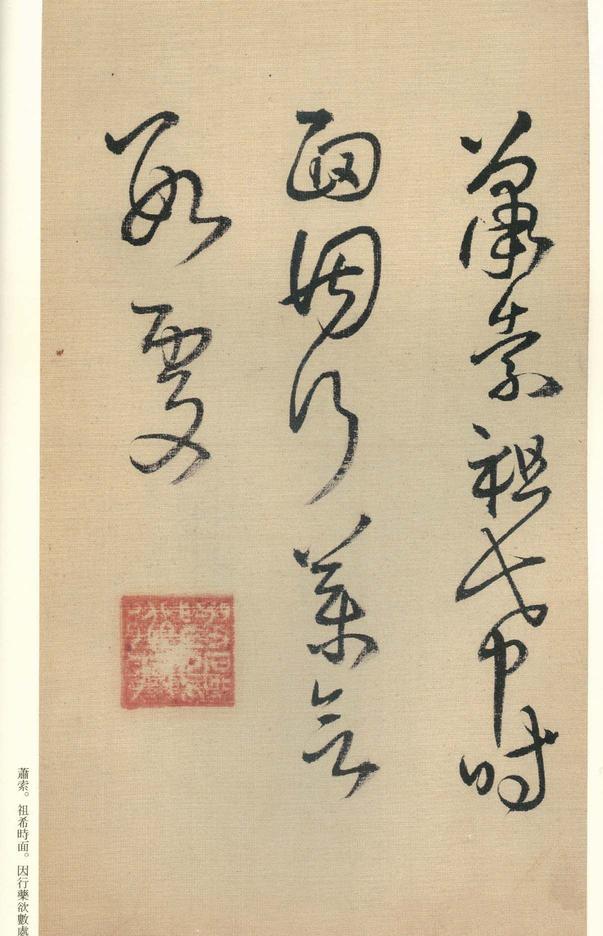 蕭索祖希時
面因行藥欲
數處
蕭索。祖希時面。因行藥欲數處